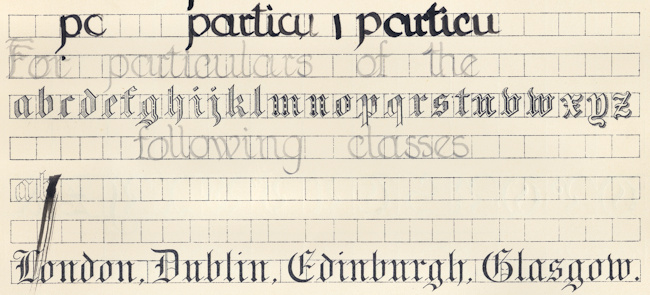 pa particu particu
For particulars of the
abcdefghijklmnopqrstuvwxyz
following classes
ak
London, Dublin, Edinburgh, Glasgow.